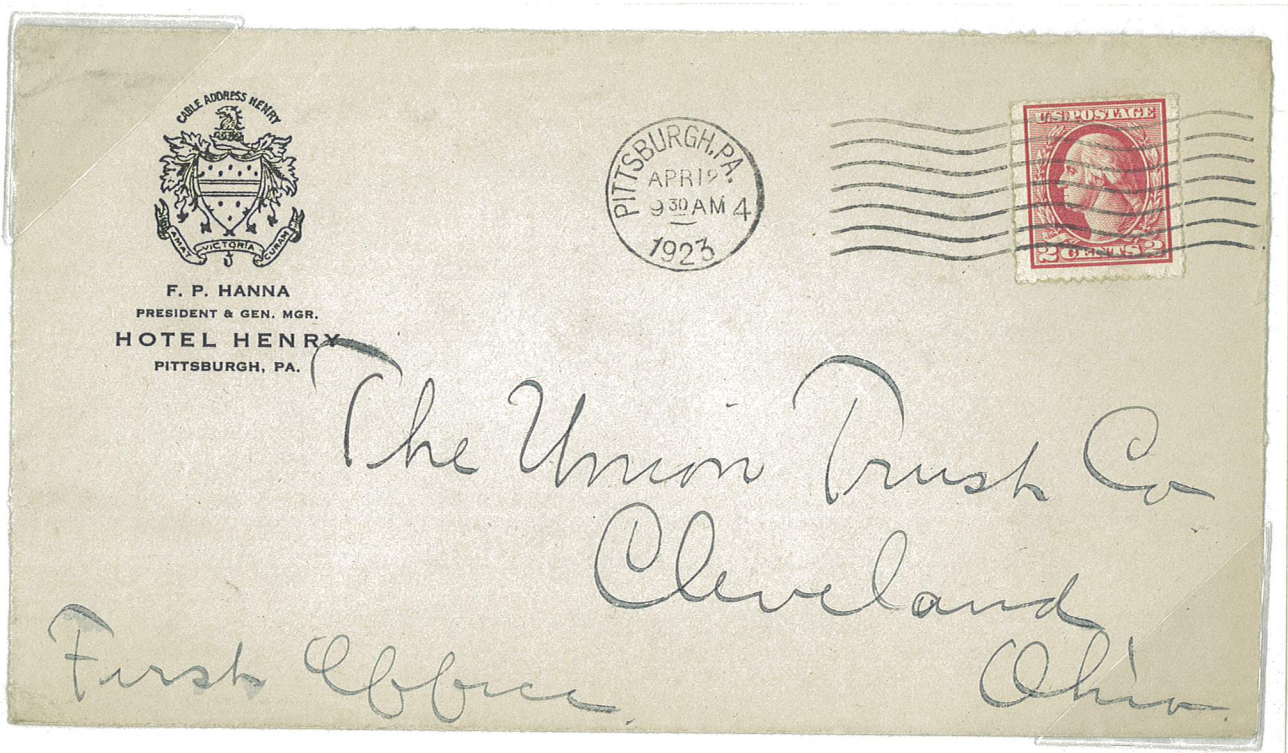 CABLE ADDRESS HENRY
AMAT VICTORIA CURAM
F. P. HANNA
PRESIDENT & GEN. MGR.
HOTEL HENRY
PITTSBURGH, PA.
PITTSBURGH, PA.
APR 12
9 30 AM 4
1923
U.S. POSTAGE
2 CENTS 2
The Union Trust Co
Cleveland
Ohio.
First Office.